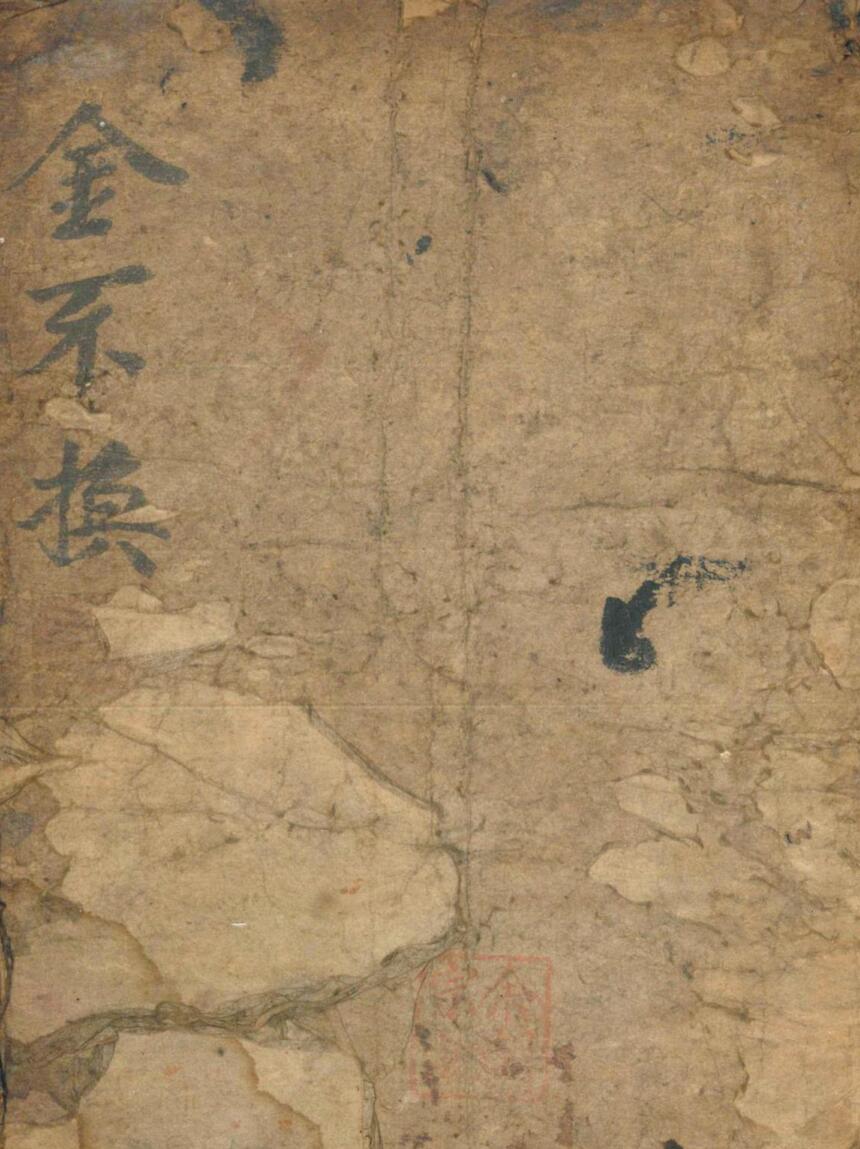 金不換